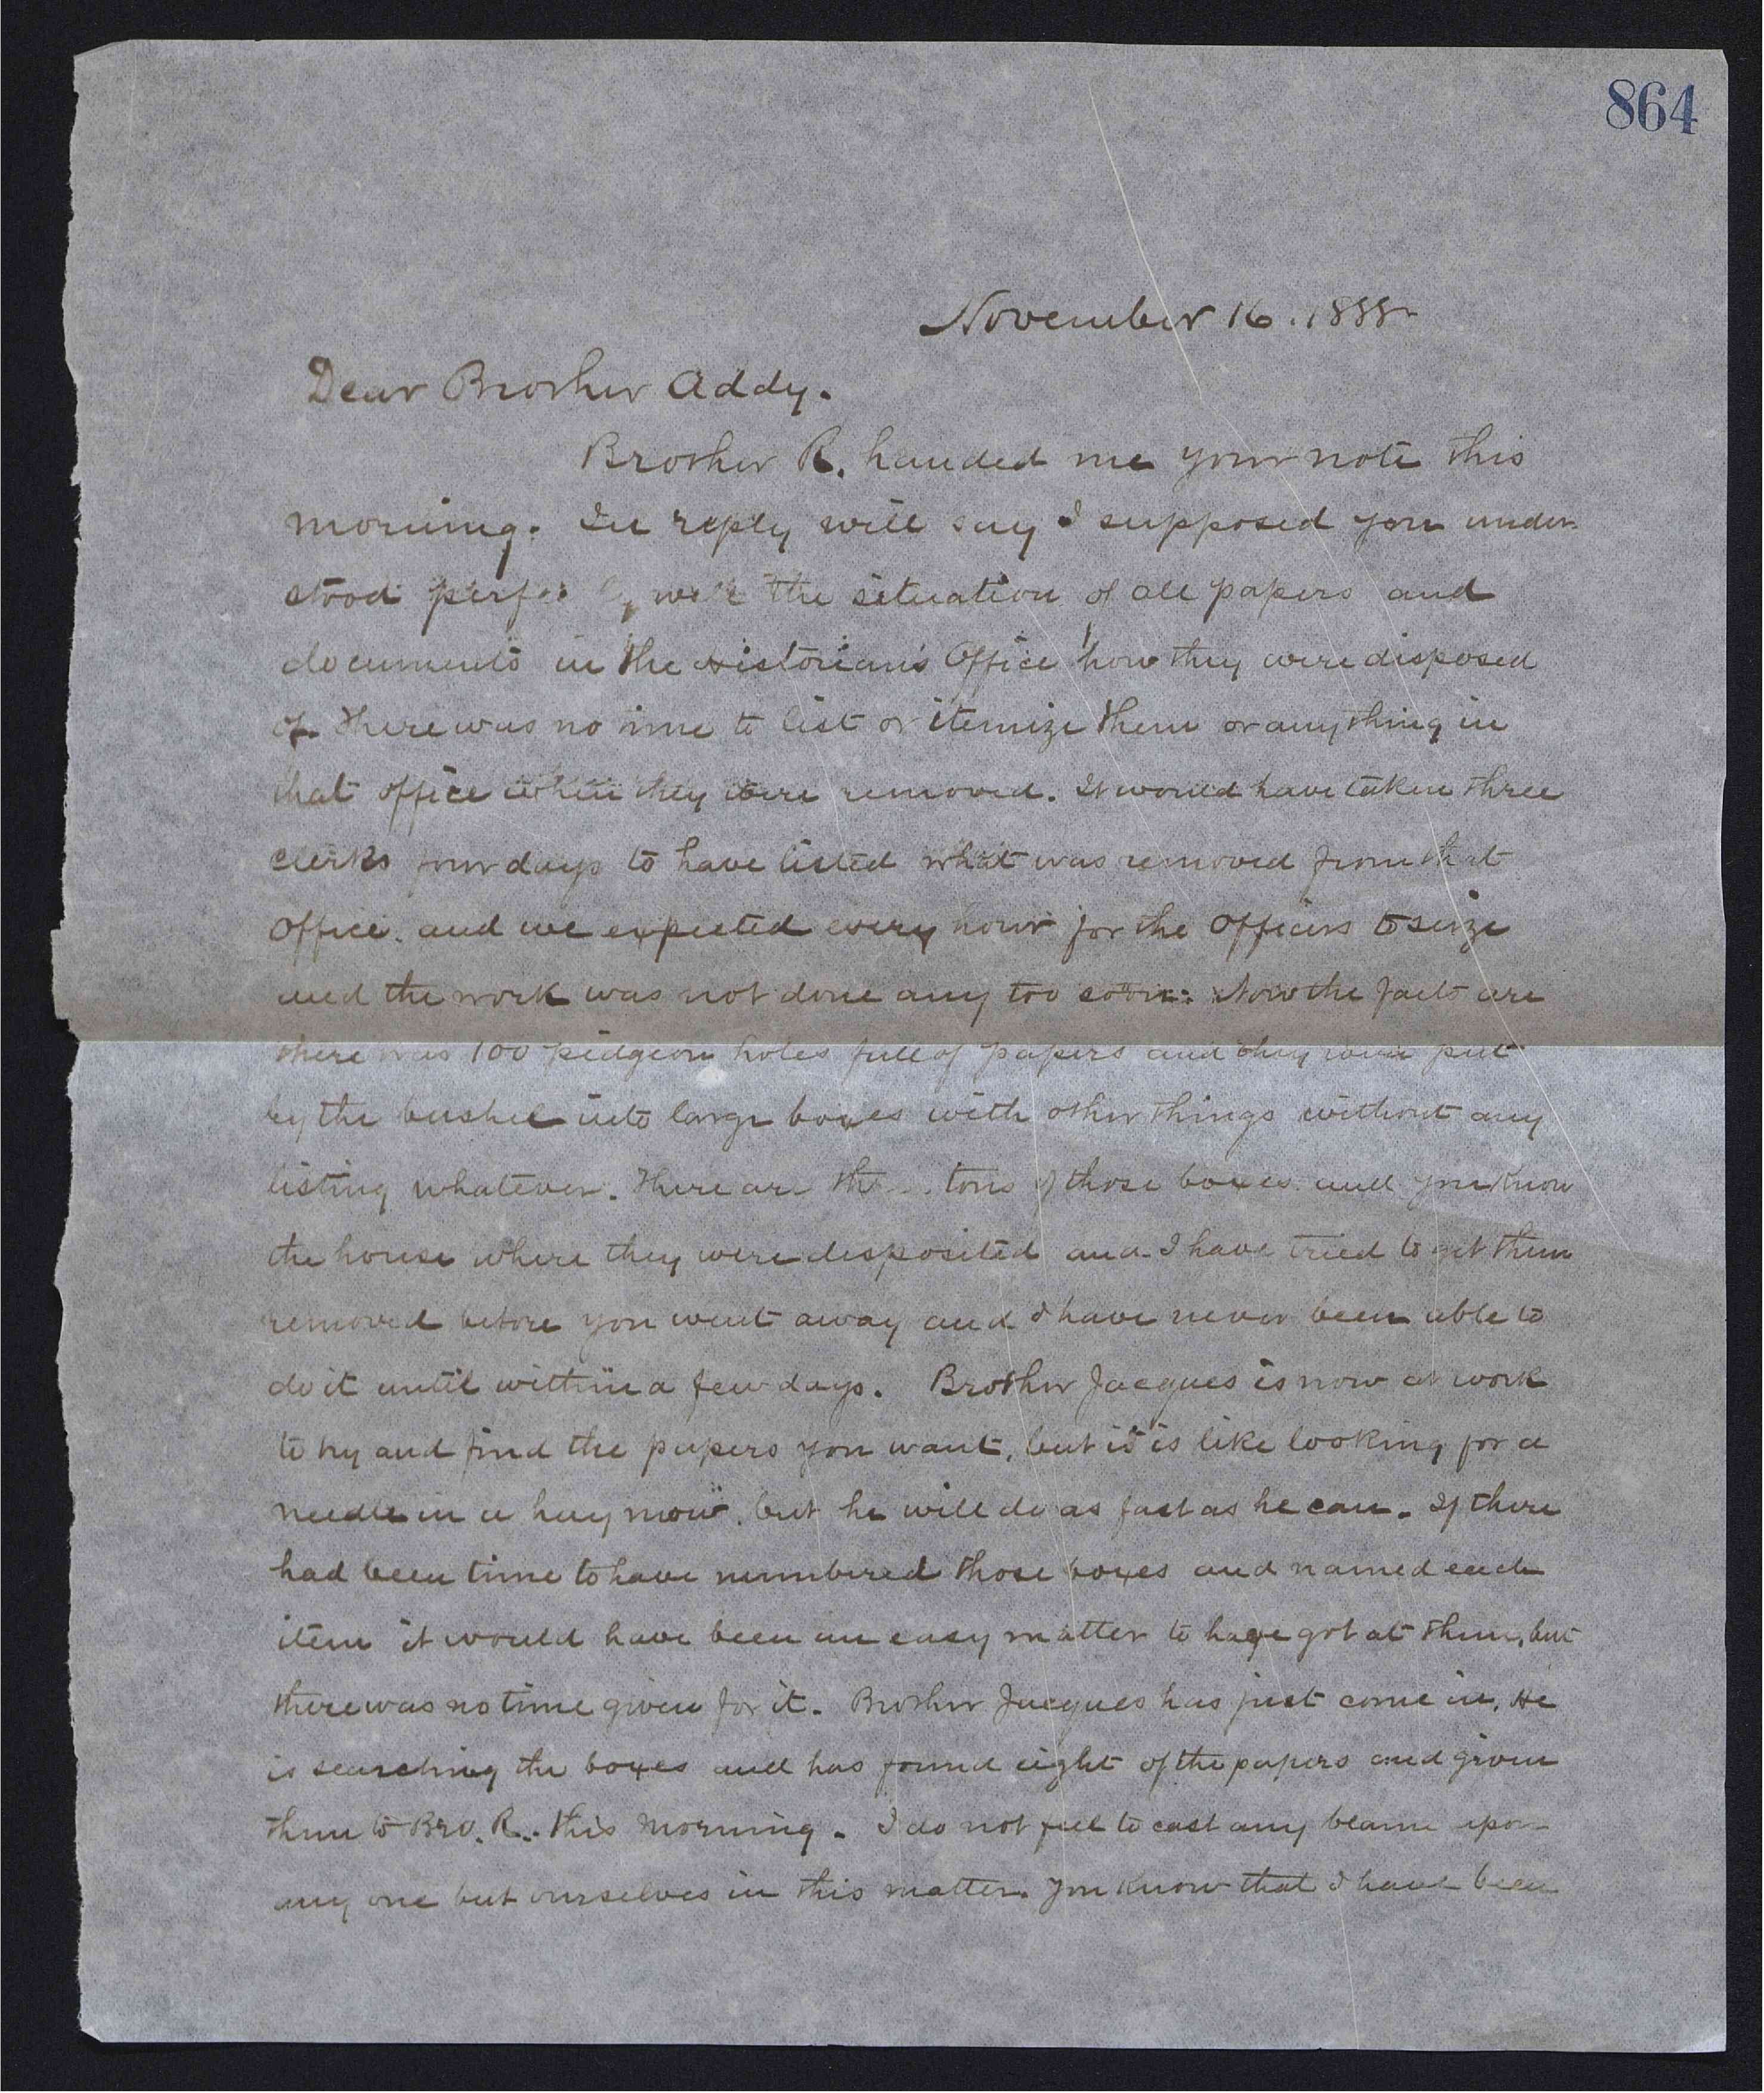 864
November 16. 1888
Dear Brother Addy.
Brother R. handed me your note this
morning. In reply will say I supposed you under-
stood well the situation of all papers and
documents in the Historians Office how they were disposed
of. there was no time to list or itemize them or anything in
that office when they were removed. It would have taken three
clerks four days to have listed what was removed from that
office. and we expected every hour for the officers to seize
and the work was not done any too soon. Now the facts are
there was 100 pidgeon holes full of papers and they were put
by the bushel into large boxes with other things without any
listing whatever. There are tons of those boxes. and you know
the house where they were desposited and I have tried to get them
removed before you went away and I have never been able to
do it until within a few days. Brother Jacques is now at work
to try and find the papers you want, but it is like looking for a
needle in a hay mow. but he will do as fast as he can. If there
had been time to have numbered those boxes and named each
item it would have been an easy matter to have got at them, but
there was no time given for it. Brother Jacques has just come in. He
is searching the boxes and has found eight of the papers and given
them to Bro. R.. this morning. I do not feel to cast any blame upon
any one but ourselves in this matter. you know that I have been